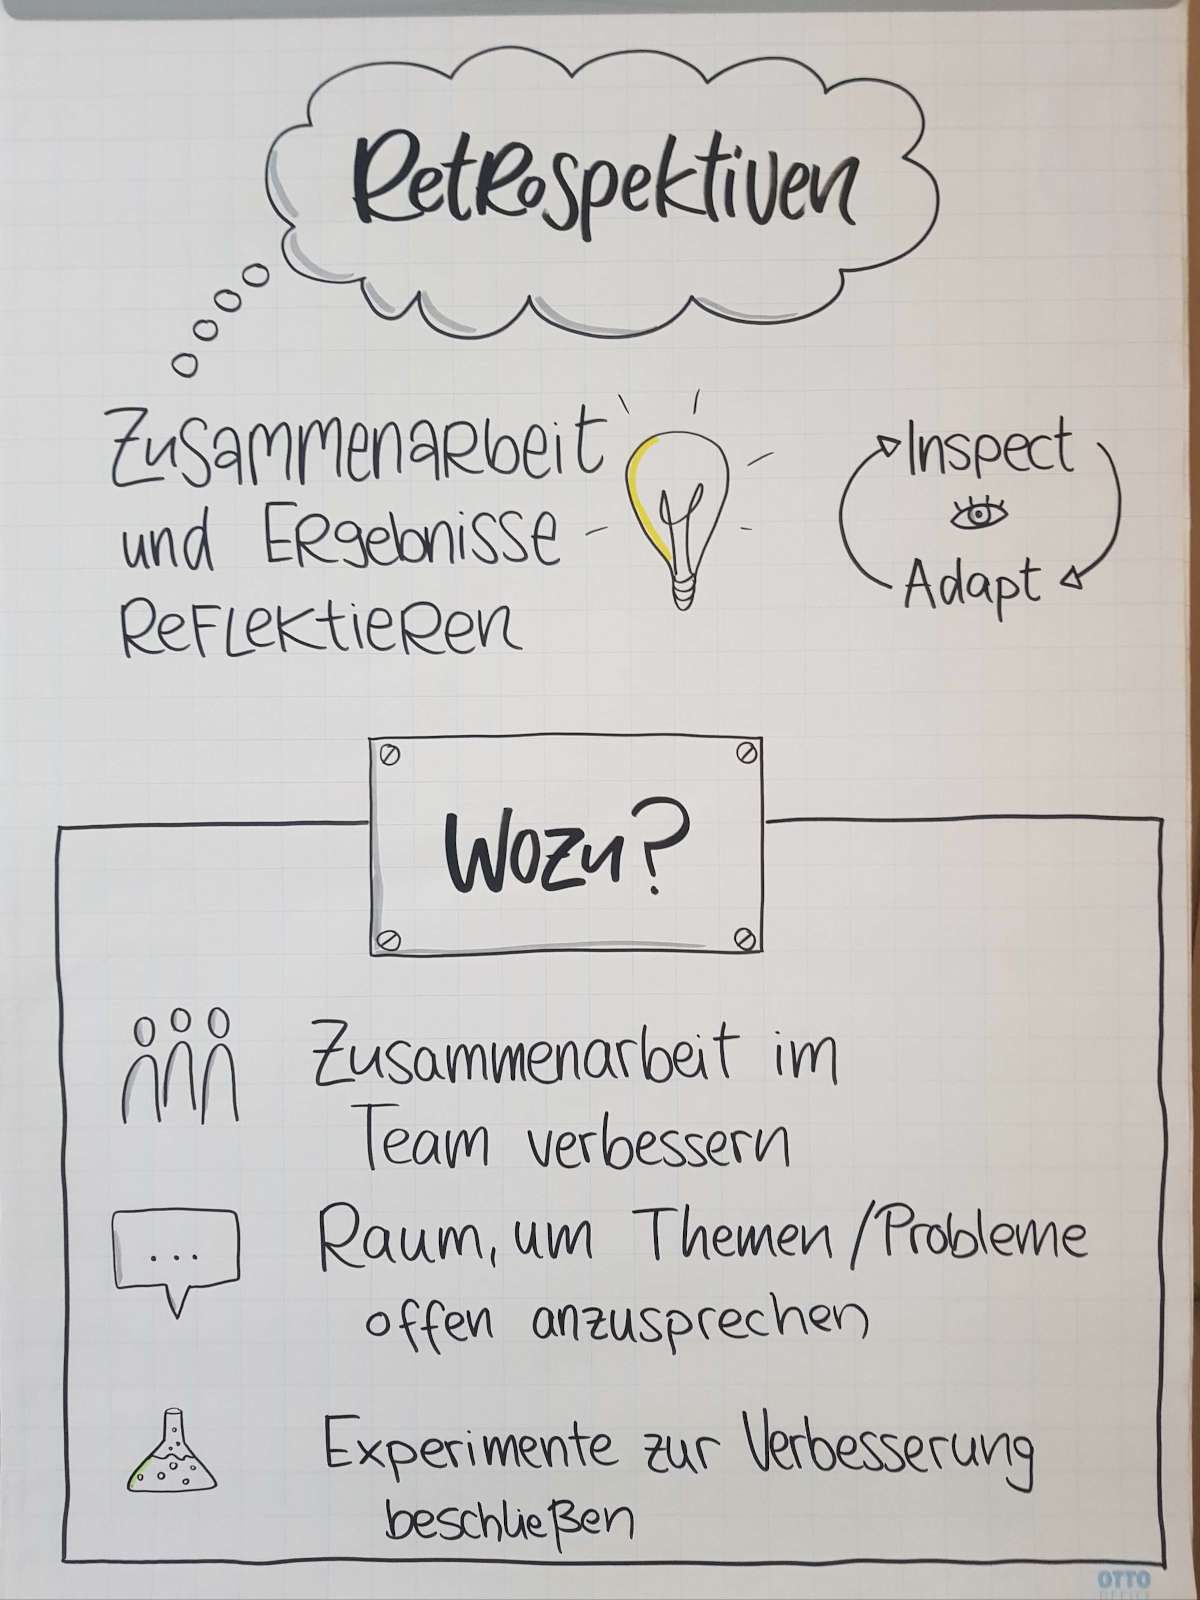 Retrospektiven
Zusammenarbeit
und Ergebnisse
reflektieren
Inspect
Adapt
Wozu?
Zusammenarbeit im
Team verbessern
Raum, um Themen/Probleme
offen anzusprechen
Experimente zur Verbesserung
beschließen
OTTO
OFFICE